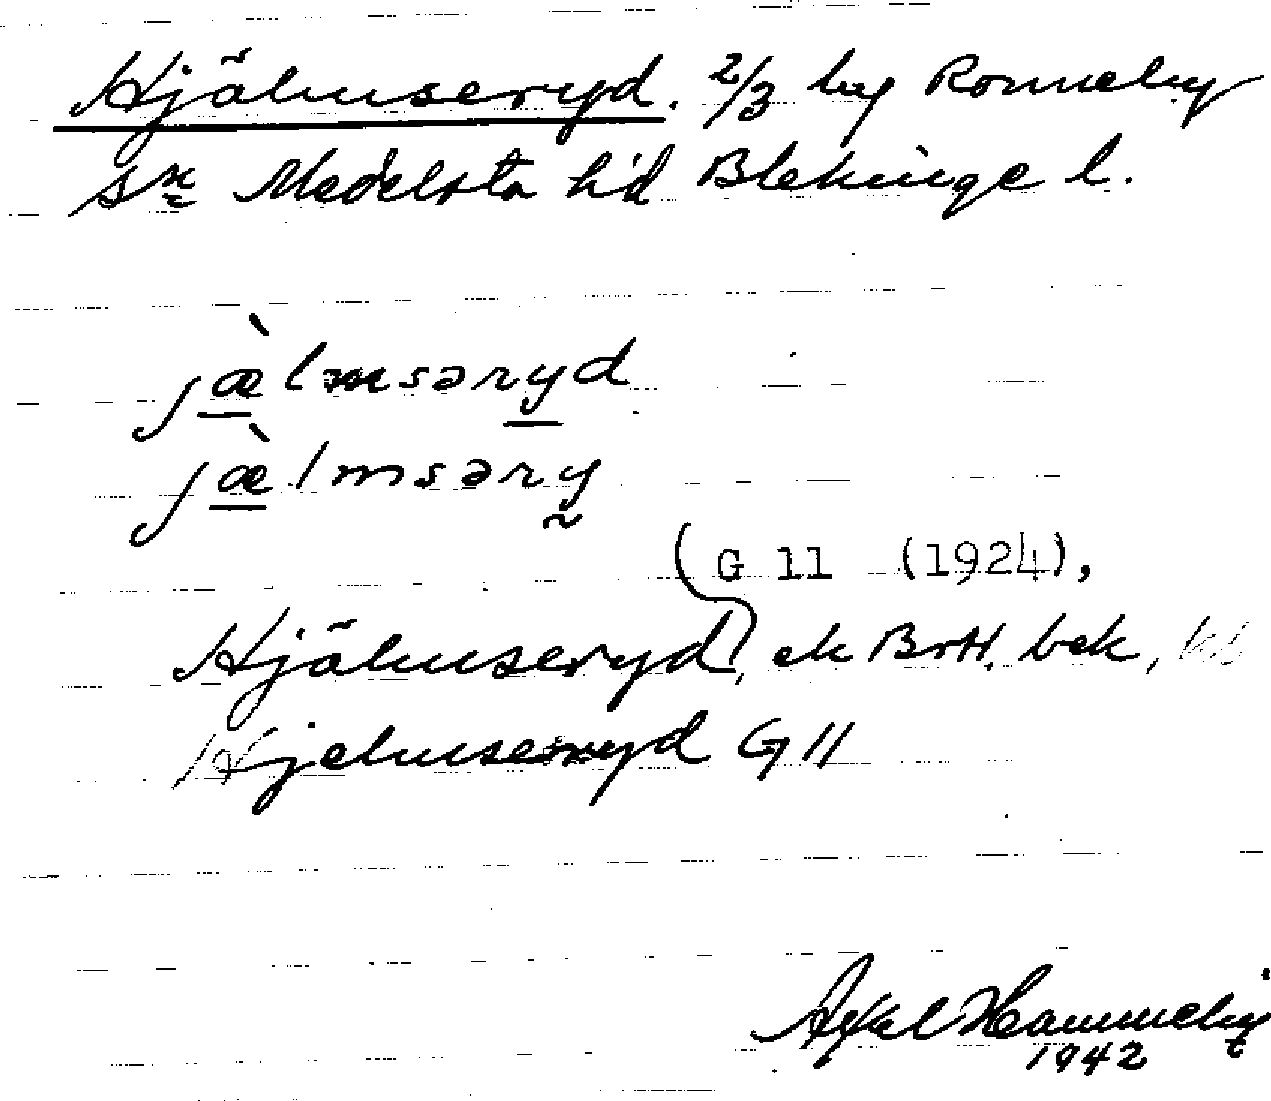 Hjälmseryd. 2/3 by Ronneby
sn Medelsta hd Blekinge l.
jæ̀lmsəryd
jæ̀lmsəry̰
G 11 (1924),
Hjälmseryd, ek Bril. bek,
Hjelmseryd G 11
Axel Hammeby
1942